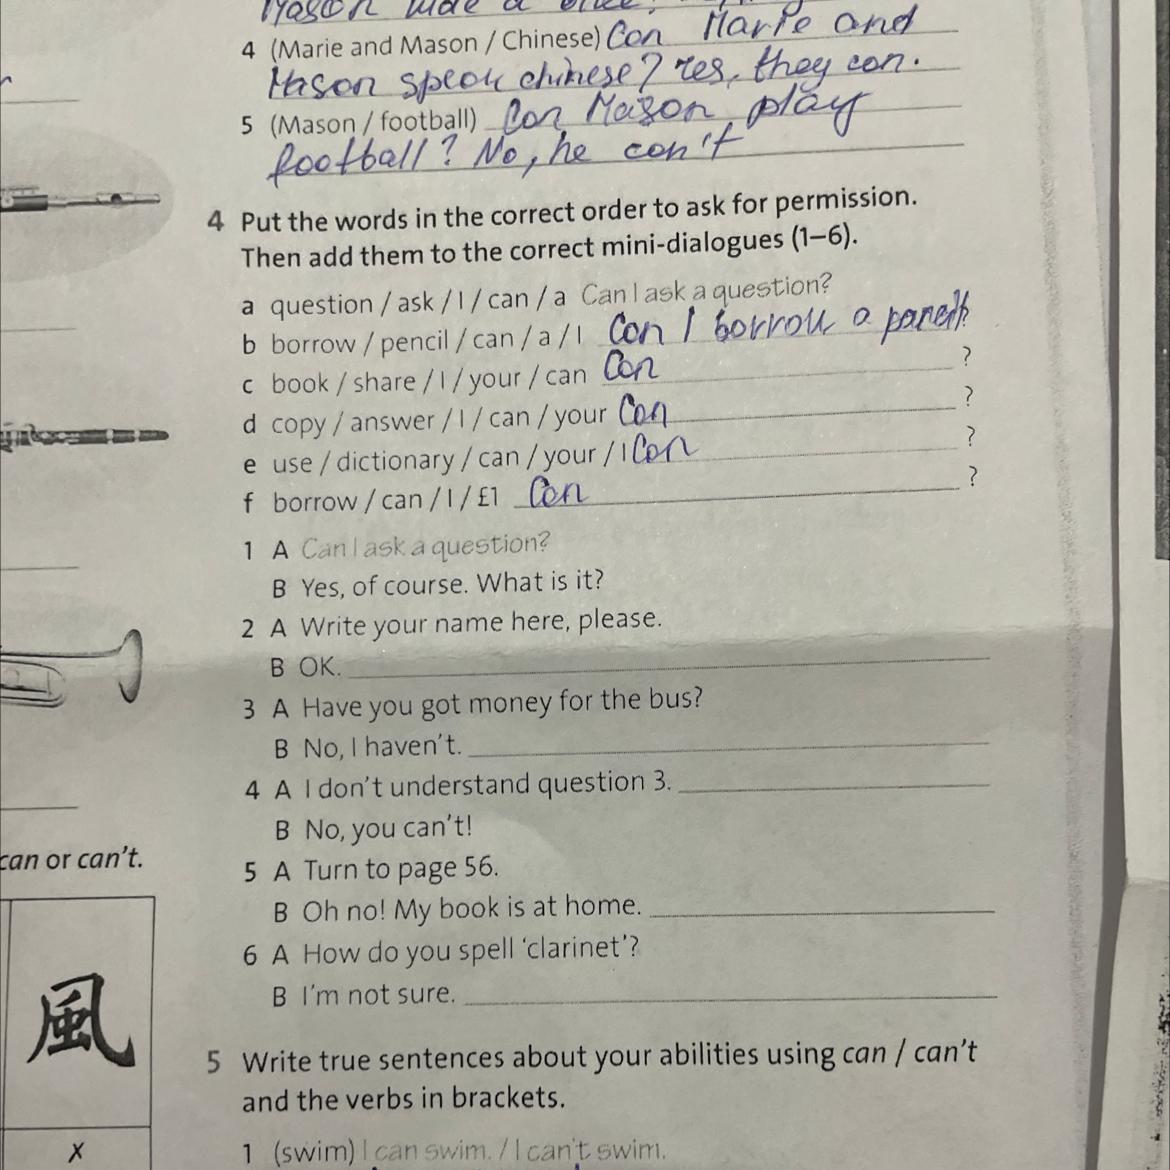 4 (Marie and Mason / Chinese) Can Marie and
Mason speak chinese? Yes, they can.
5 (Mason / football) Can Mason play
football? No, he can't
4 Put the words in the correct order to ask for permission.
Then add them to the correct mini-dialogues (1–6).
a question / ask / I / can / a Can I ask a question?
b borrow / pencil / can / a / I Can I borrow a
c book / share / I / your / can Can ?
d copy / answer / I / can / your Can ?
e use / dictionary / can / your / I Can ?
f borrow / can / I / £1 Can ?
1 A Can I ask a question?
B Yes, of course. What is it?
2 A Write your name here, please.
B OK.
3 A Have you got money for the bus?
B No, I haven't.
4 A I don't understand question 3.
B No, you can't!
5 A Turn to page 56.
B Oh no! My book is at home.
6 A How do you spell 'clarinet'?
B I'm not sure.
can or can't.
風
x
5 Write true sentences about your abilities using can / can't
and the verbs in brackets.
1 (swim) I can swim. / I can't swim.